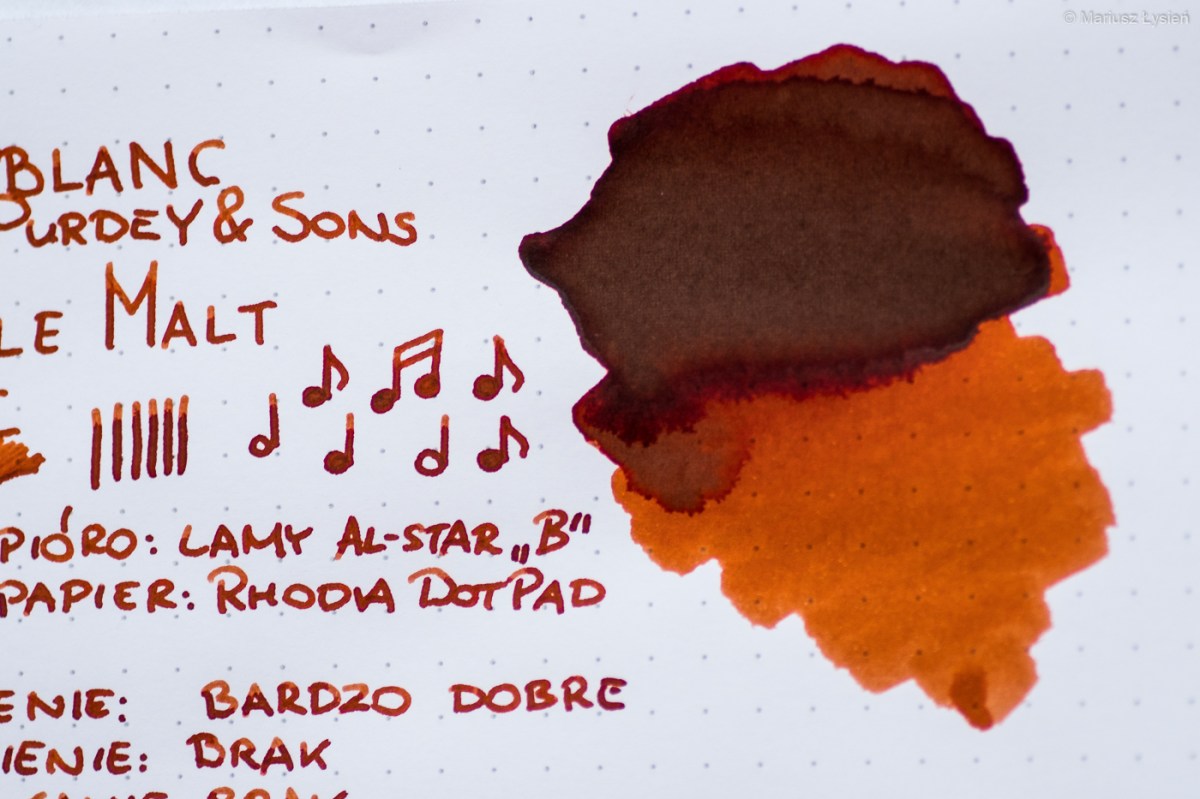 © Mariusz Łysień
BLANC
PURDEY & SONS
LE MALT
PIÓRO: LAMY AL-STAR „B"
PAPIER: RHODIA DOTPAD
ENIE: BARDZO DOBRE
IENIE: BRAK
BRAK